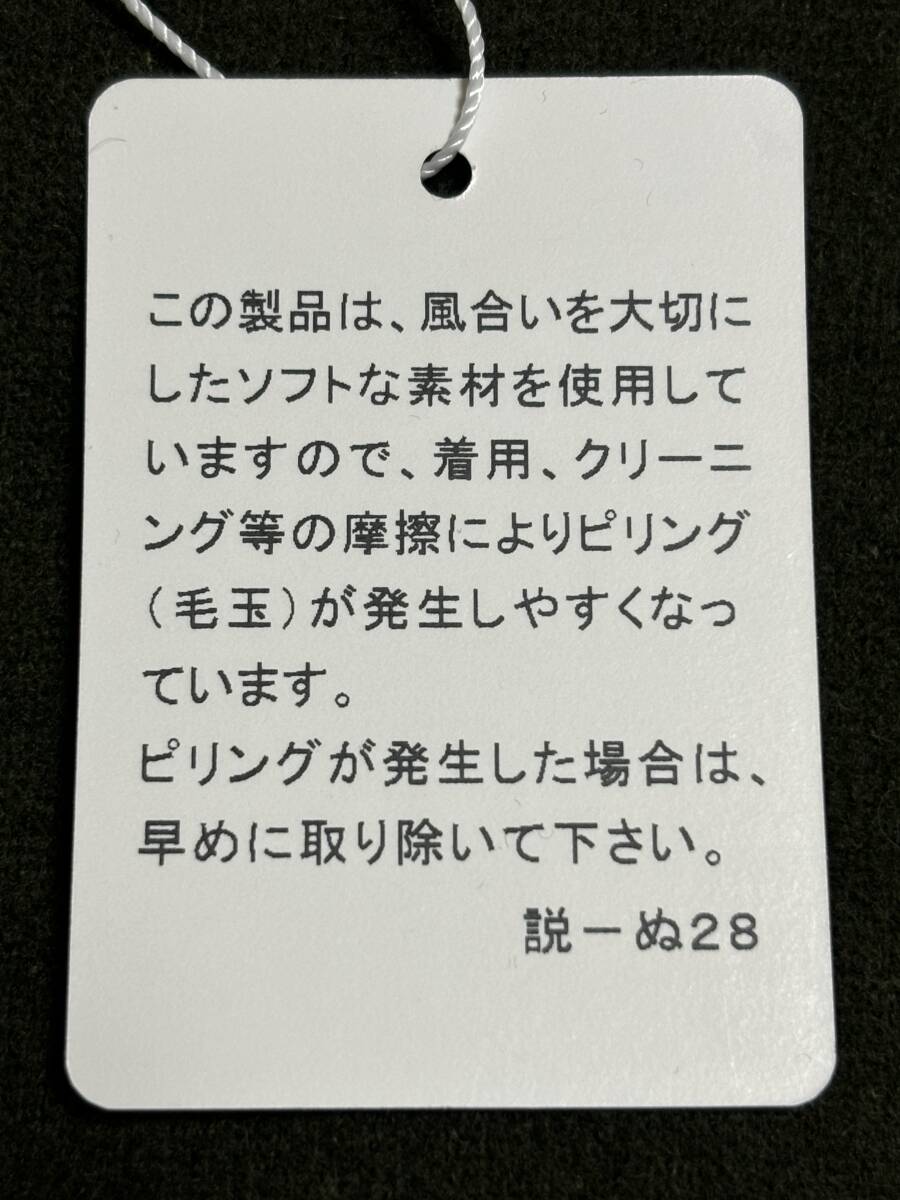 この製品は、風合いを大切に
したソフトな素材を使用して
いますので、着用、クリーニ
ング等の摩擦によりピリング
（毛玉）が発生しやすくなっ
ています。
ピリングが発生した場合は、
早めに取り除いて下さい。
説－ぬ２８